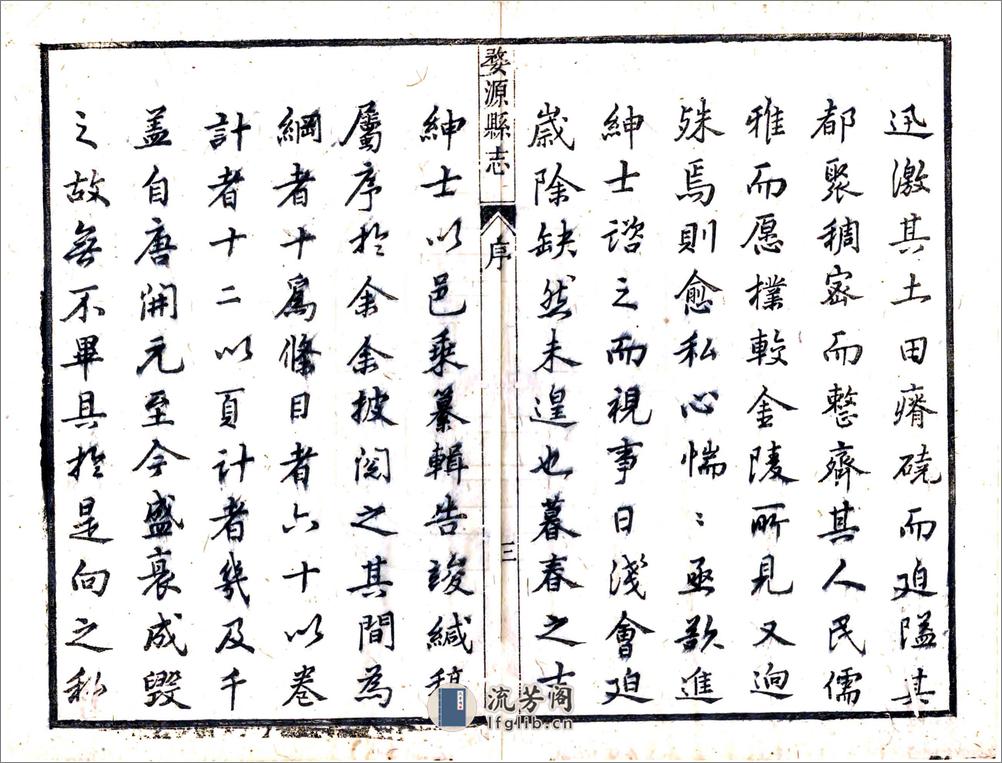 迅激其土田瘠磽而廹隘其
都聚稠密而整齊其人民儒
雅而愿樸較金陵所見又逈
殊焉則愈私心惴〻亟欲進
紳士諮之而視事日淺會廹
歲除缺然未遑也暮春之吉
婺源縣志
序
三
紳士以邑乘纂輯告竣緘稿
屬序於余余披閱之其間為
綱者十爲條目者六十以卷
計者十二以頁計者幾及千
盖自唐開元至今盛衰成毀
之故無不畢具於是向之私
流芳阁
lfglib.cn